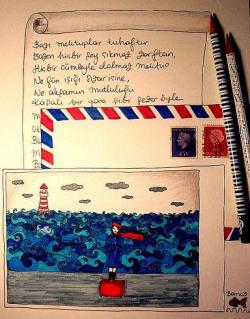 Bazı mektuplar tuhaftır
Bazen hiçbir şey çıkmaz zarftan,
Hiçbir cümleyle dolmaz mektup.
Ne gün ışığı sızar içine,
Ne akşamın mutluluğu
Kapalı bir yara gibi gezer öyle